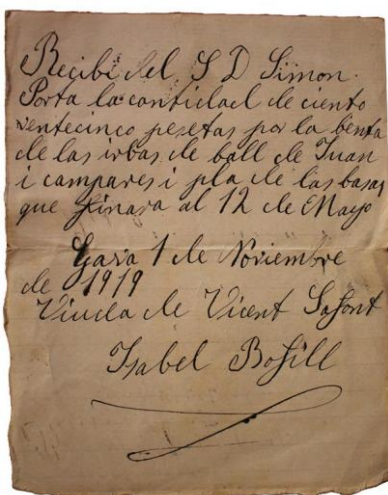 Recibi del S D Simon
Porta la cantidad de ciento
ventecinco pesetas por la benta
de las irbas de ball de Juan
i campares i pla de las basas
que finara al 12 de Mayo
Gava 1 de Noviembre
de 1919
Viuda de Vicent Safont
Isabel Bofill